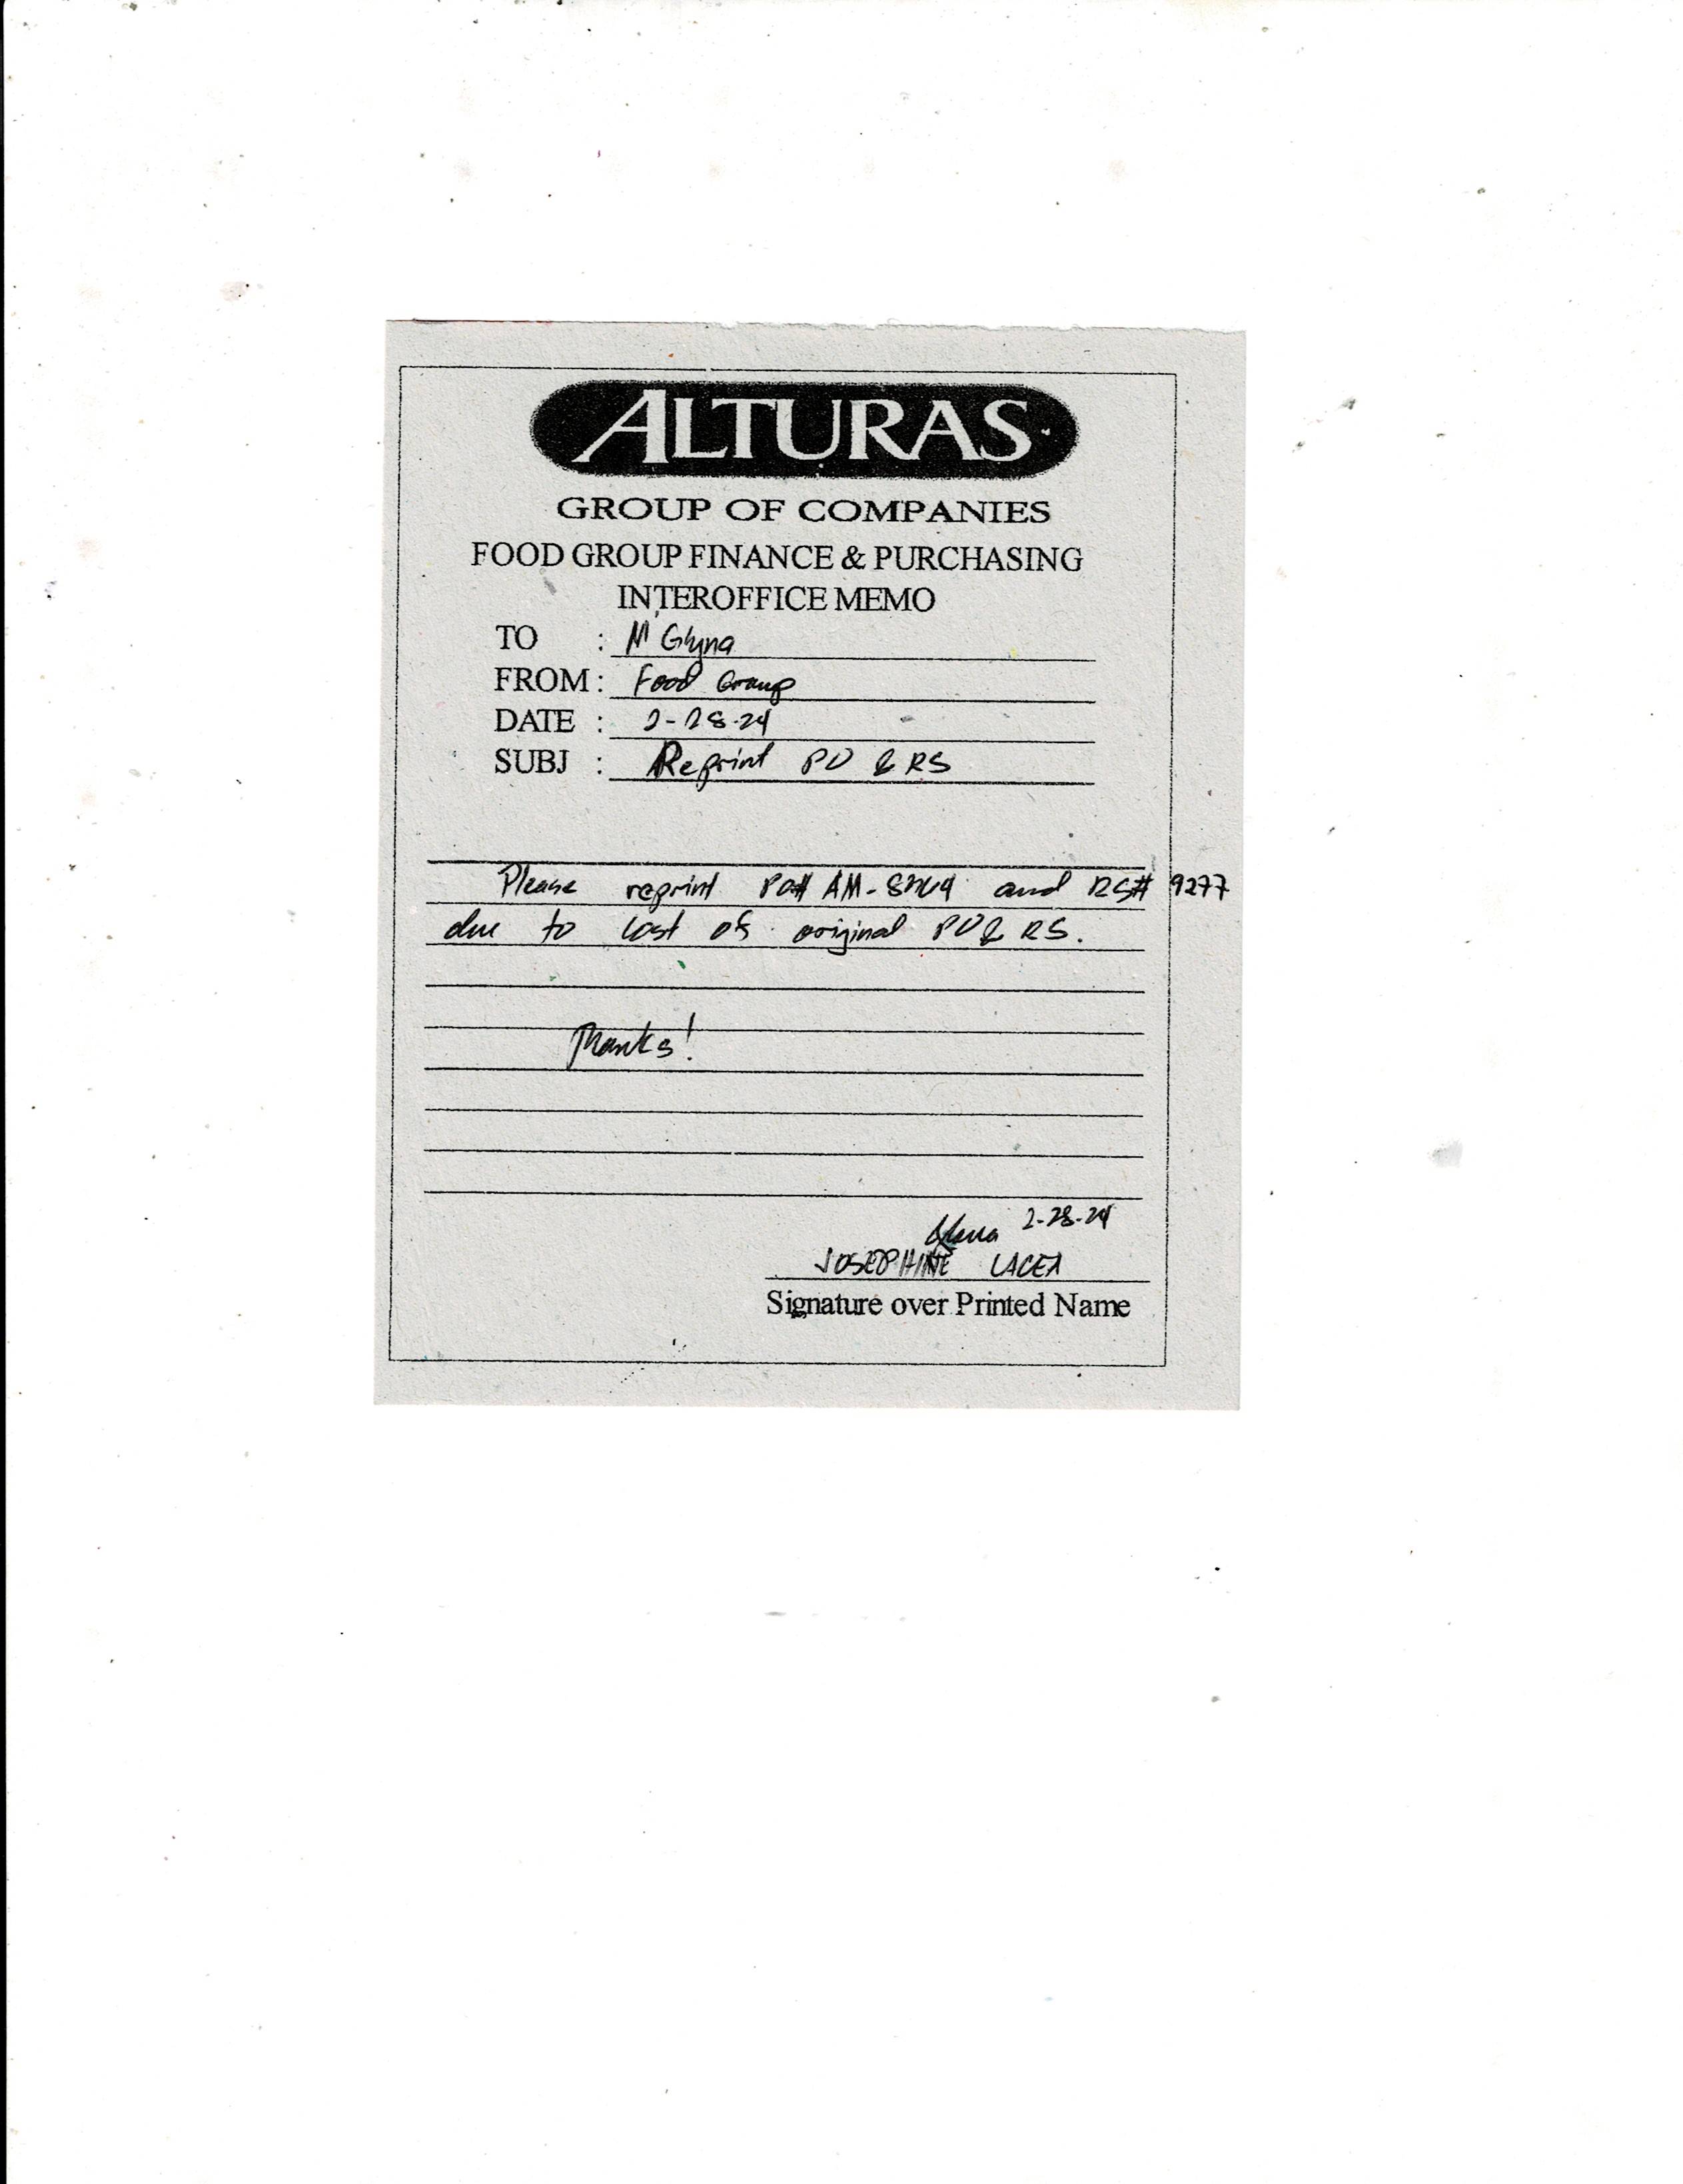 ALTURAS
GROUP OF COMPANIES
FOOD GROUP FINANCE & PURCHASING
INTEROFFICE MEMO
TO : M' Glyna
FROM : Food Group
DATE : 2-28-24
SUBJ : Reprint PO & RS
Please reprint PO# and RS# 9277
due to lost of original PO & RS.
Thanks!
2-28-24
JOSEPHINE LACEA
Signature over Printed Name